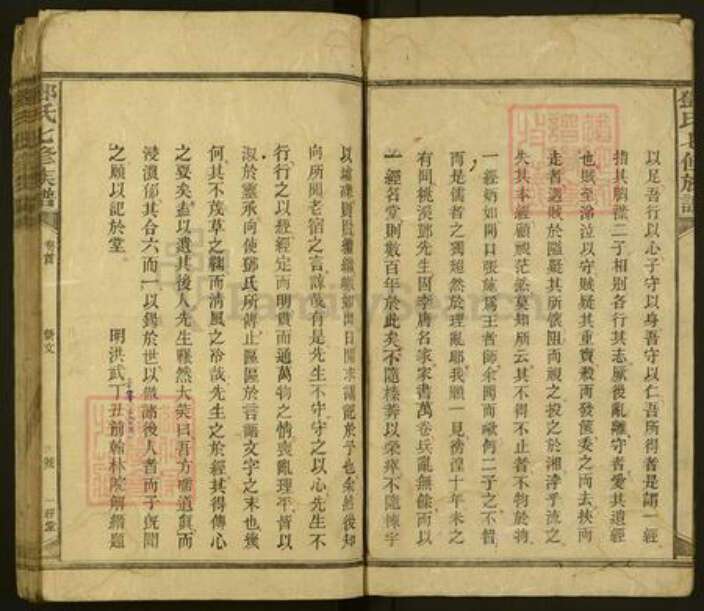 鄧氏七修族譜
以足吾行以心子守以身吾守以仁吾所得者是謂一經
指其胸謂二子相別各行其志厥後亂離守者愛其遺經
也賊至涕泣以守賊疑其重寶殺而發篋委之而去挾而
走者遇賊於隘疑其所懷阻而視之投之於湘滹乎流之
失其本經顧視茫茫莫知所云其不得不止者不物於物
一經炳如開口張施為王者師余聞而嘆何二子之不智
而是儒者之獨超然於理亂耶我願一見徬徨十年未之
有聞桃溪鄧先生因李唐名家家書萬卷兵亂無餘而以
一經名堂則數百年於此矣不隨榛莽以榮瘁不隨棟宇
以
向所聞老宿之言諒哉有是先生不守守之以心先生不
行行之以是經定而明貫而通萬物之情喪亂理平皆以
淑於靈承向使鄧氏所傳止區區於言語文字之末也幾
何其不茂草之鞠而清風之冷哉先生之於經其得傳心
之要矣盍以遺其後人先生囅然大笑曰吾方嚌道真而
浸濃郁其合六而一以錫於世以徵諸後人者而子既聞
之願以記於堂
明洪武丁丑前翰林院解縉題
鄧氏七修族譜
卷首
藝文
一經堂